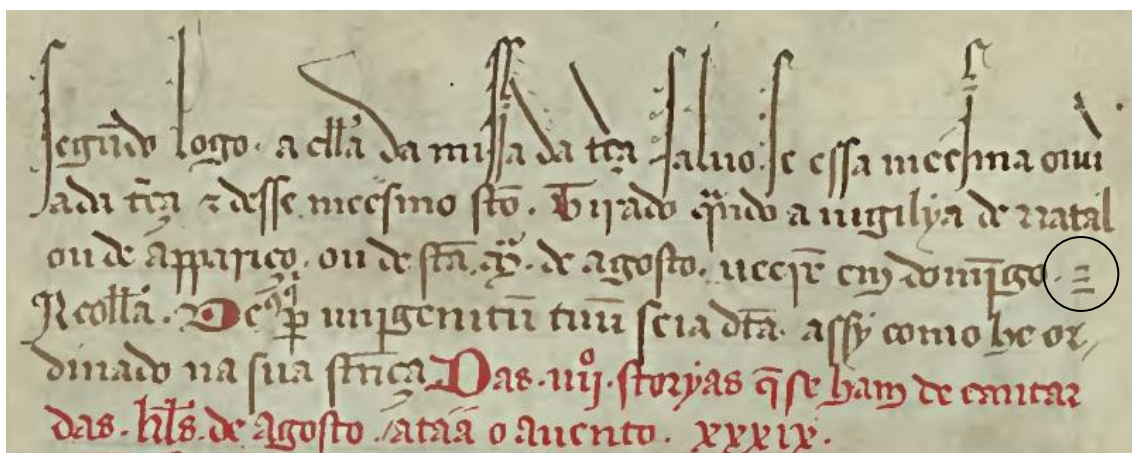 segūdo logo · a cllā da missa da tr̄ça saluo · se essa meesma oui
ada tr̄ça ⁊ desse meesmo stō · Tirado q̄ndo a uigilya de natal
ou de appariço · ou de stā · mª · de agosto · ueerē em domīgo · =
A collā · Deꝰ q̄ ꝑ unigenitū tuū seia dtā · assy como he or,
dinado na sua stn̄ça Das · uii º · storyas q̄ se ham de cantar
das · kl̄s · de agosto · ataa o auento · xxxix ·